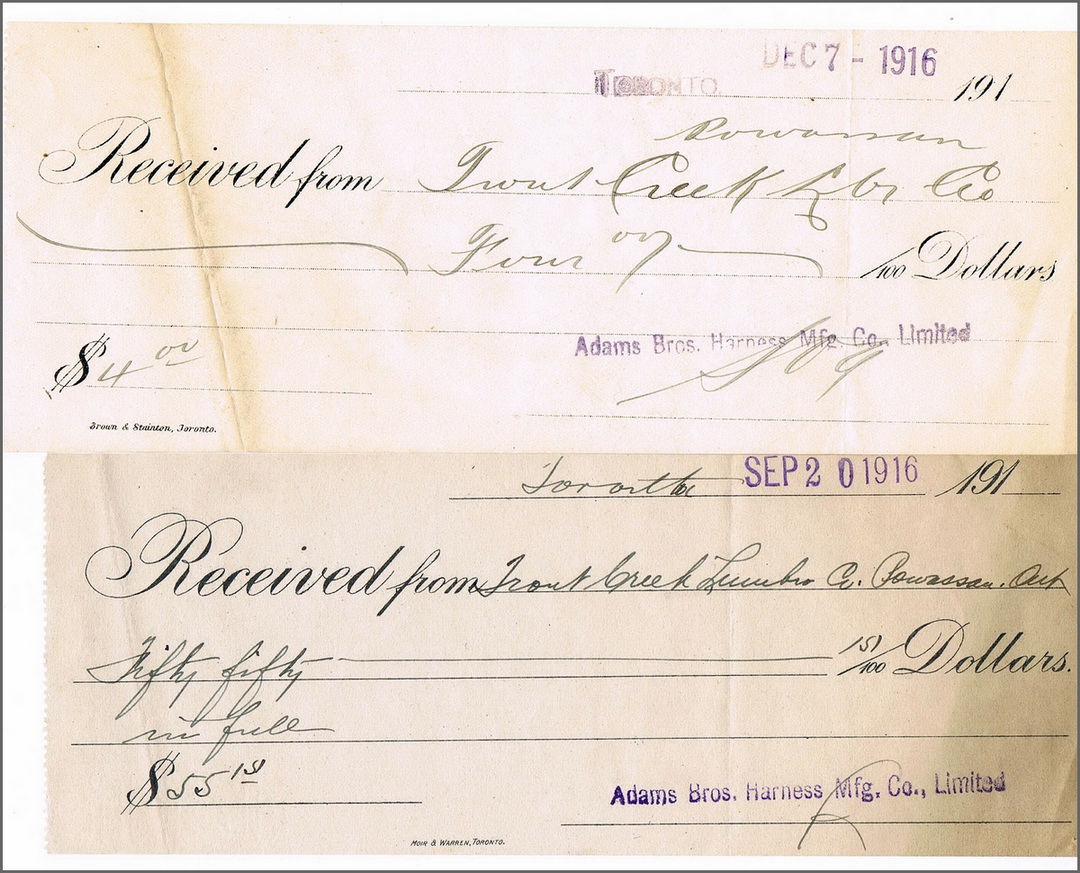 DEC 7 - 1916
TORONTO. 191
Powassan
Received from Trout Creek Lbr Co
Four 00/100 Dollars
Adams Bros. Harness Mfg. Co., Limited
$4 00
Brown & Stainton, Toronto.
Toronto SEP 20 1916 191
Received from Trout Creek Lumber Co. Powassan. Ont
Fifty fifty 15/100 Dollars.
in full
$55 15
Adams Bros. Harness Mfg. Co., Limited
MOIR & WARREN, TORONTO.